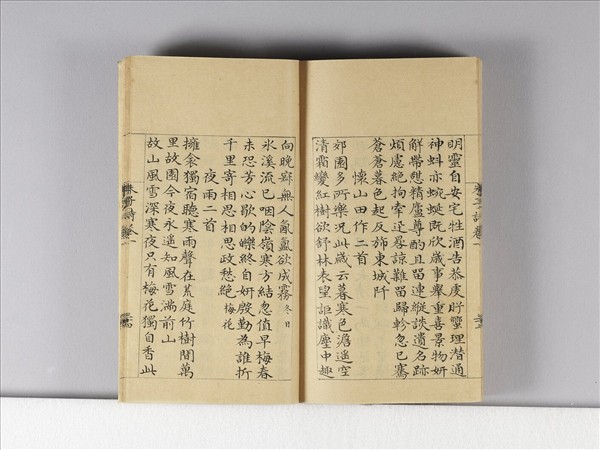 明靈自安宅牲酒告恭虔肸蠁理潜通
神蚪亦蜿蜒既欣歲事舉重喜景物妍
解帶憇精廬尊酌且留連縱談遺名跡
煩慮絶拘牽迟晷諒難留歸軫忽已騫
蒼蒼暮色起反斾東城阡
懷山田作二首
郊園多所樂况此歲云暮寒色澹遥空
清霜變紅樹欲舒林表望詎識塵中趣
向晚寂無人氤氳欲成霧 冬日
氷溪流已咽陰嶺寒方結忽值早梅春
未恐芳心歇的皪終自妍慇勤為誰折
千里寄相思相思政愁絶 梅花
夜雨二首
擁衾獨宿聽寒雨聲在荒庭竹樹間萬
里故園今夜永遥知風雪滿前山
故山風雪深寒夜只有梅花獨自香此